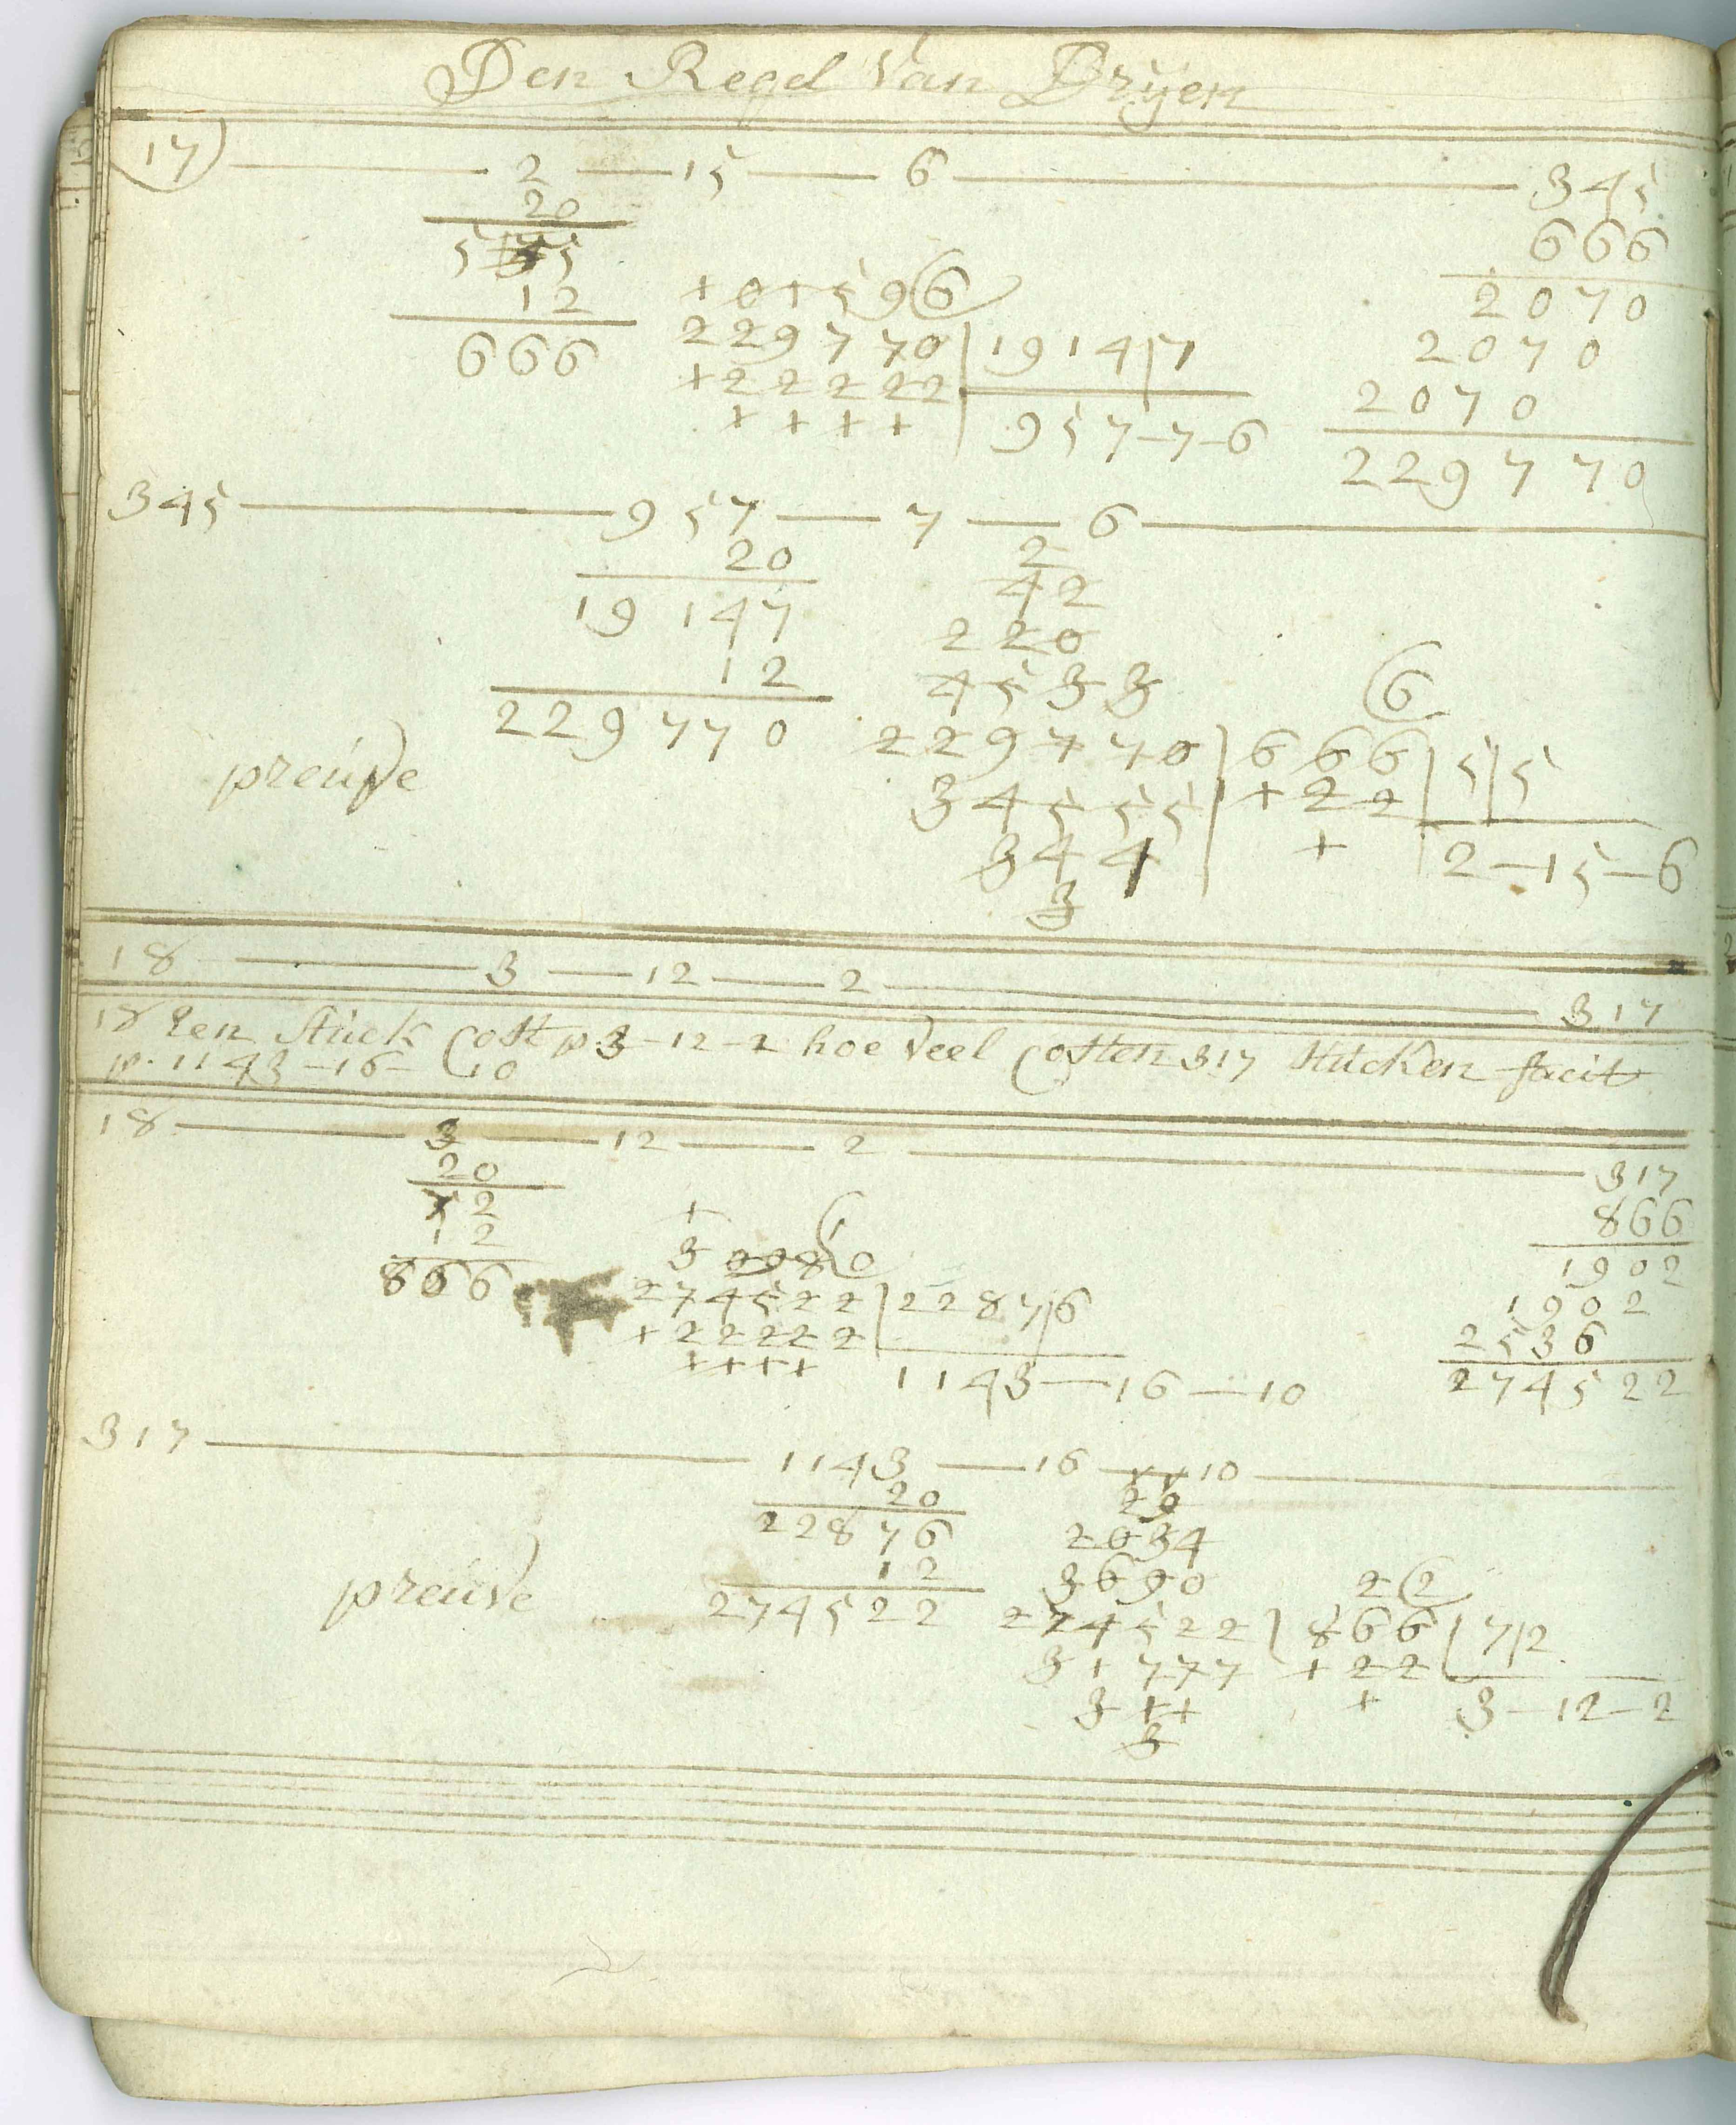 Den Regel Van Dryen
17 2 15 6 345
20 666
55 2070
12 2070
666 2070
229770
+ 0 + 5 9 6
229770 19147
+22222
+ + + + 957-7-6
345 957 7 6
20
19147
12
229770
2
42
220
4533 6
229770 666 55
34555 +22
344 + 2-15-6
3
preuve
18 3 12 2 317
18 Een Stuck Cost p 3-12-2 hoe veel Costen 317 stucken facit
p. 1143-16-10
18 3 12 2 317
20 866
72 1902
12 1902
866 2536
274522
+
3 0 9 8 0
274522 22876
+22222
++++ 1143-16-10
317 1143 16 10
20
22876
12
274522
29
2034
3690 2 2
274522 866 72
31777 +22
3++ + 3-12-2
3
preuve